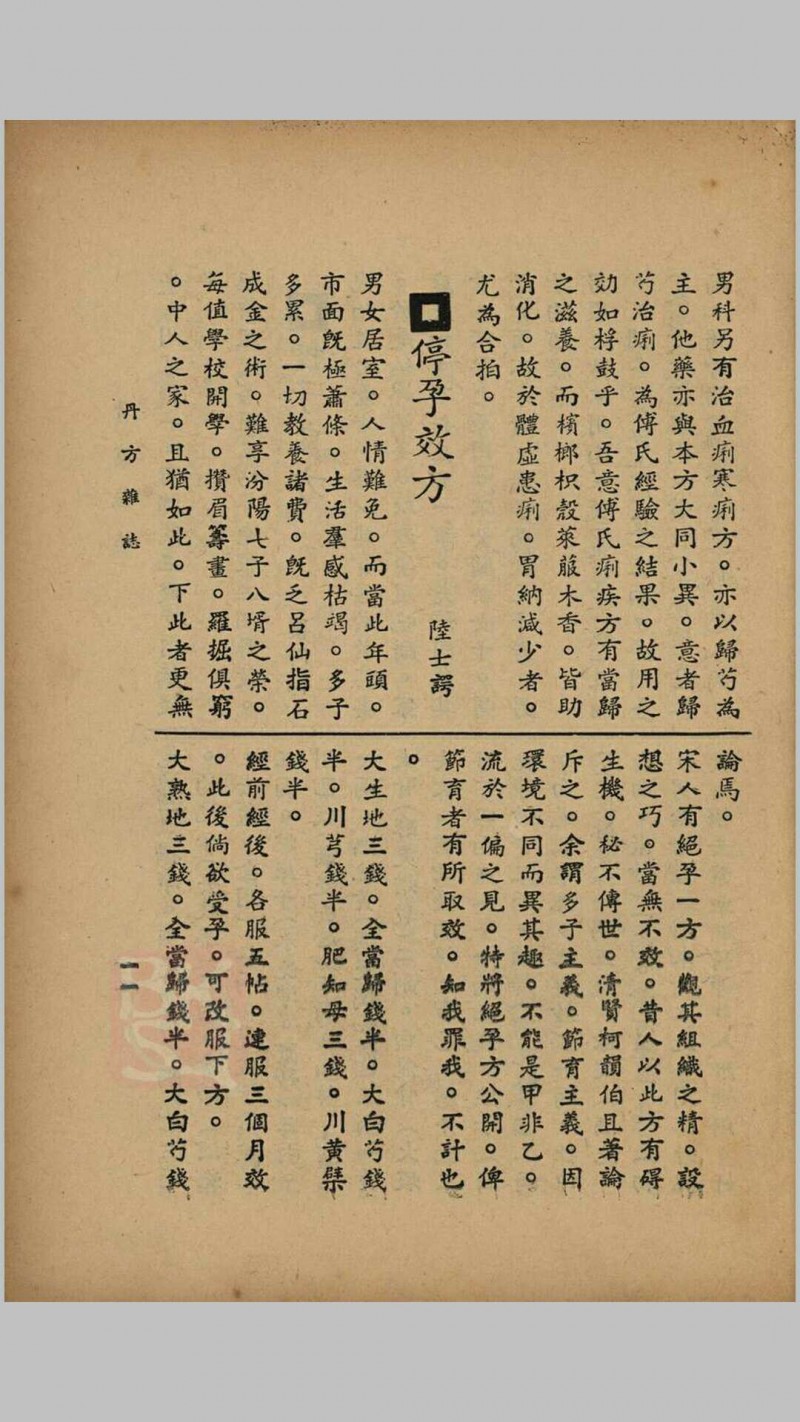 男科另有治血痢寒痢方。亦以歸芍為
主。他藥亦與本方大同小異。意者歸
芍治痢。為傅氏經驗之結果。故用之
効如桴鼓乎。吾意傅氏痢疾方有當歸
之滋養。而檳榔枳殼萊菔木香。皆助
消化。故於體虛患痢。胃納減少者。
尤為合拍。
停孕效方
陸士諤
男女居室。人情難免。而當此年頭。
市面既極蕭條。生活羣感枯竭。多子
多累。一切教養諸費。既乏呂仙指石
成金之術。難享汾陽七子八壻之榮。
每值學校開學。攢眉籌畫。羅掘俱窮
。中人之家。且猶如此。下此者更無
論焉。
宋人有絕孕一方。觀其組織之精。設
想之巧。當無不效。昔人以此方有碍
生機。秘不傳世。清賢柯韻伯且著論
斥之。余謂多子主義。節育主義。因
環境不同而異其趣。不能是甲非乙。
流於一偏之見。特將絕孕方公開。俾
節育者有所取效。知我罪我。不計也
。
大生地三錢。全當歸錢半。大白芍錢
半。川芎錢半。肥知母三錢。川黄檗
錢半。
經前經後。各服五帖。連服三個月效
。此後倘欲受孕。可改服下方。
大熟地三錢。全當歸錢半。大白芍錢
丹方雜誌
一一